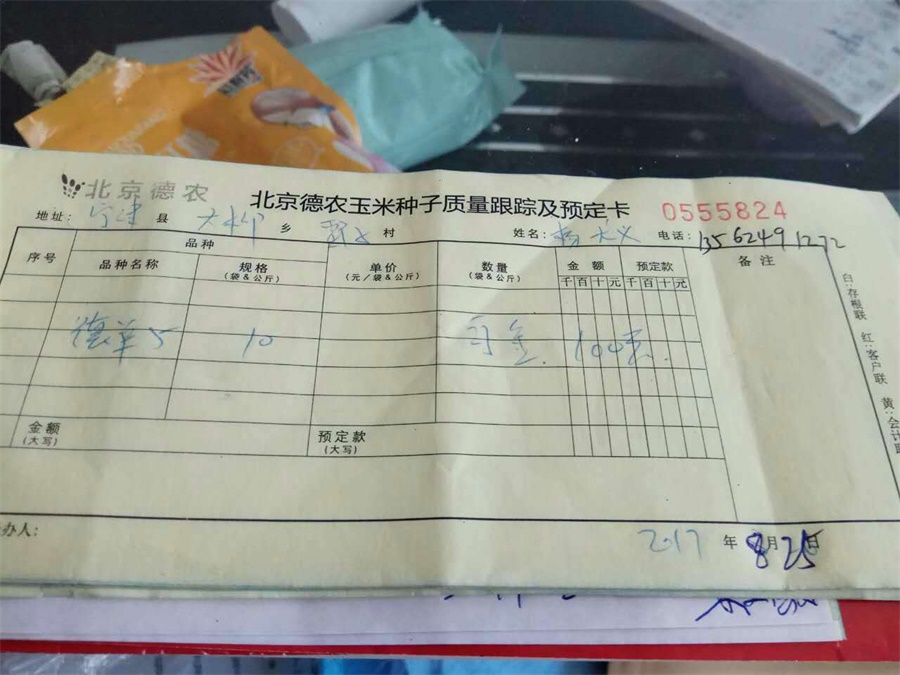 北京德农
北京德农玉米种子质量跟踪及预定卡 0555824
地址: 宁津 县 大柳 乡 村 姓名: 杨 义 电话: 13562491272
序号 品种 单价 (元/袋&公斤) 数量 (袋&公斤) 金额 预定款 备注
品种名称 规格 (袋&公斤) 千 百 十 元 千 百 十 元
德单5 10 100
金额 (大写) 预定款 (大写)
办人: 2017 年 8 月 25 日
白:存根联 红:客户联 黄:会计联